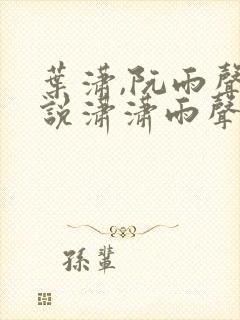 葉潇,阮雨聲
說潇潇雨聲
孫輩